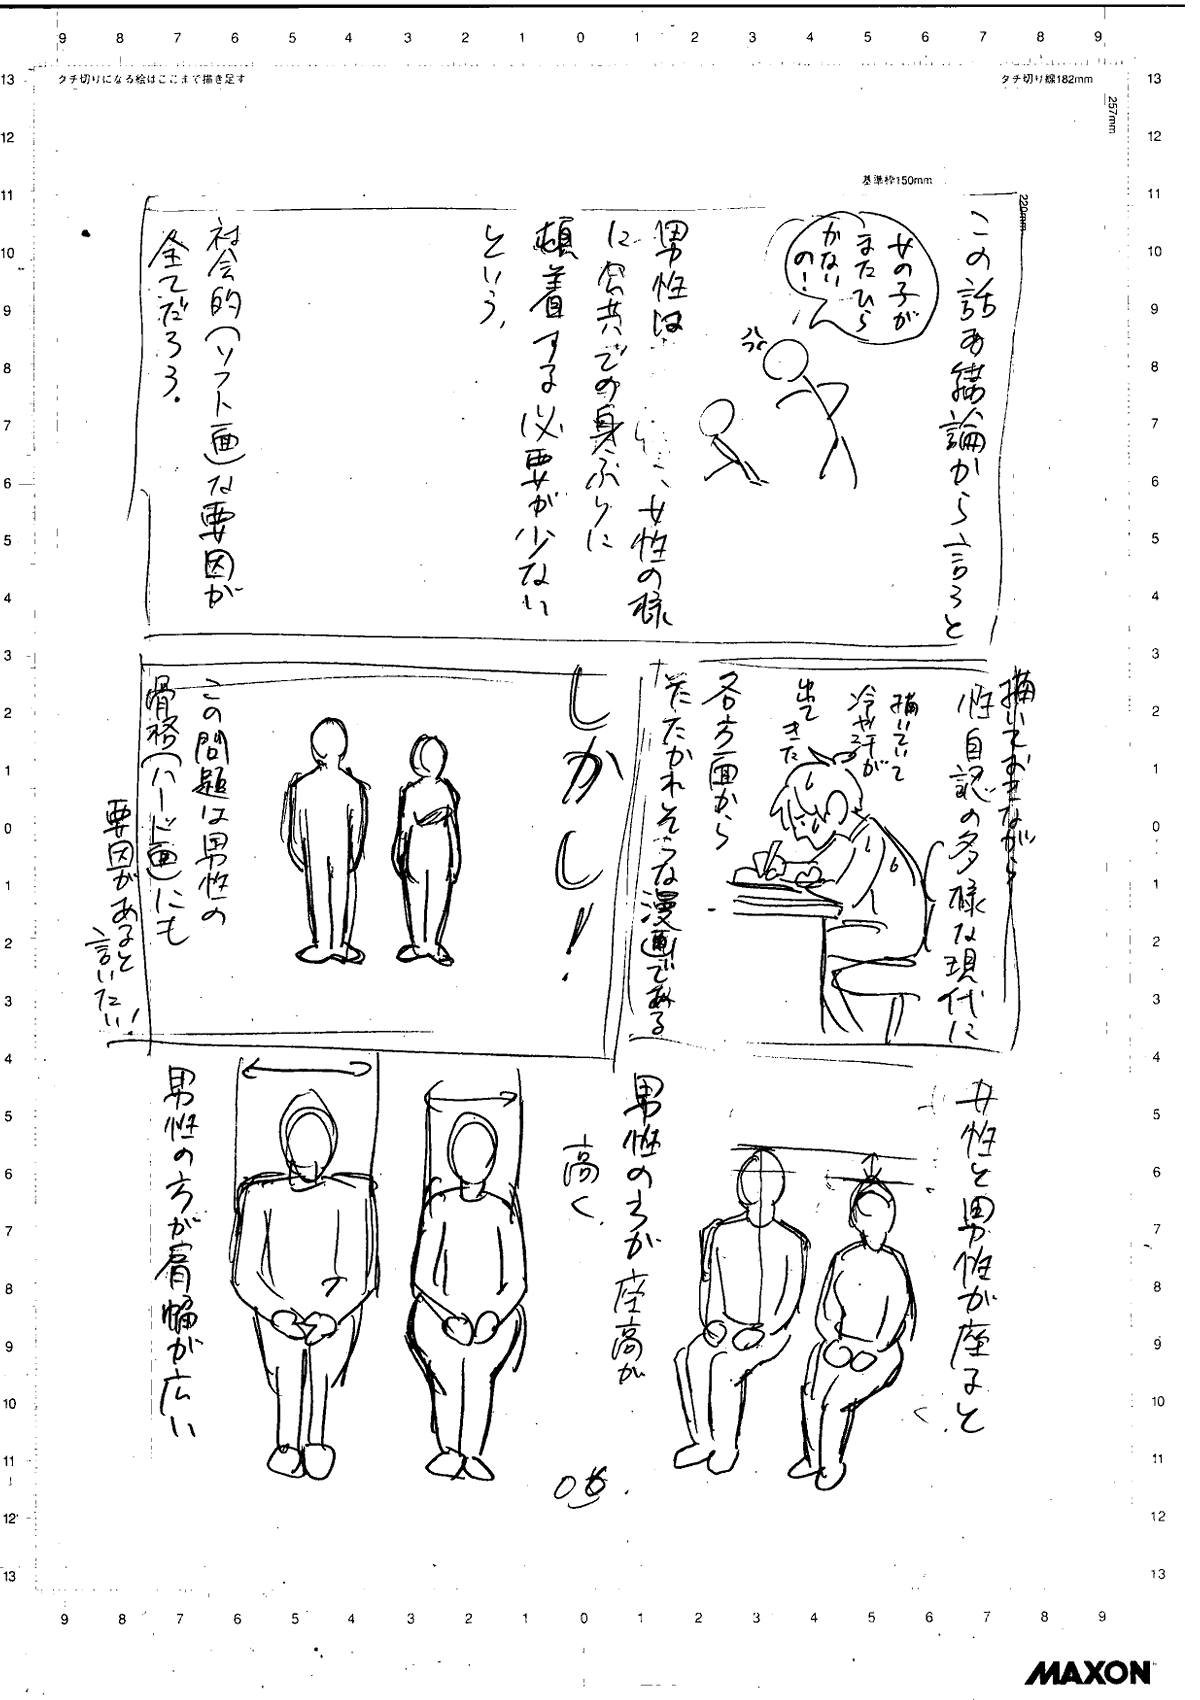 9 8 7 6 5 4 3 2 1 0 1 2 3 4 5 6 7 8 9
タチ切りになる絵はここまで描き足す
タチ切り線182mm
257mm
基準枠150mm
220mm
この話を結論から言ろと
女の子が
またひら
かない
の!
男性は
、女性の様
に公共での身ぶりに
頓着する必要が少ない
という、
社会的(ソフト面)な要因が
全てだろう.
描いておきながら
性自認の多様な現代に
描いていて
冷や汗が
出て
きた
各方面から
たたかれそうな漫画である
しかし!
この問題は男性の
骨格(ハード面)にも
要因があると
言いたい!
女性と男性が座ると
男性の方が座高が
高く
男性の方が肩幅が広い
06.
13 12 11 10 9 8 7 6 5 4 3 2 1 0 1 2 3 4 5 6 7 8 9 10 11 12 13
13 12 11 10 9 8 7 6 5 4 3 2 1 0 1 2 3 4 5 6 7 8 9 10 11 12 13
9 8 7 6 5 4 3 2 1 0 1 2 3 4 5 6 7 8 9
MAXON